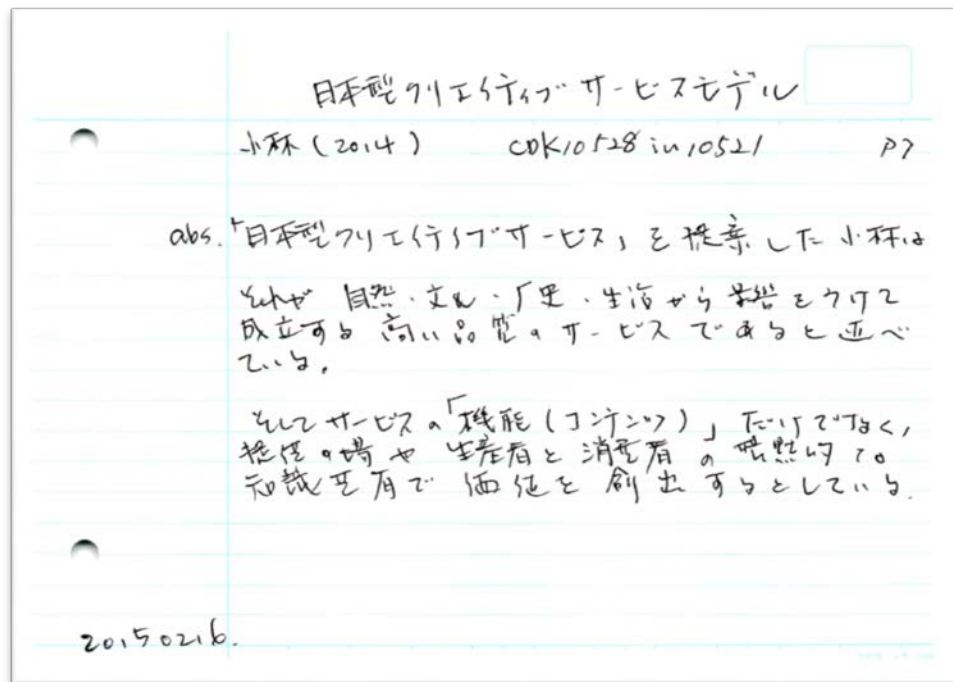 日本型クリエイティブサービスモデル
小林(2014) CDK10528 in 10521 P7
abs.「日本型クリエイティブサービス」を提案した小林は
それが 自然・文化・歴史・生活から影響をうけて
成立する 高い品質のサービスであると述べ
ている。
そしてサービスの「機能(コンテンツ)」だけでなく,
提供の場や 生産者と消費者の暗黙的な
知識共有で 価値を創出するとしている.
20150216.